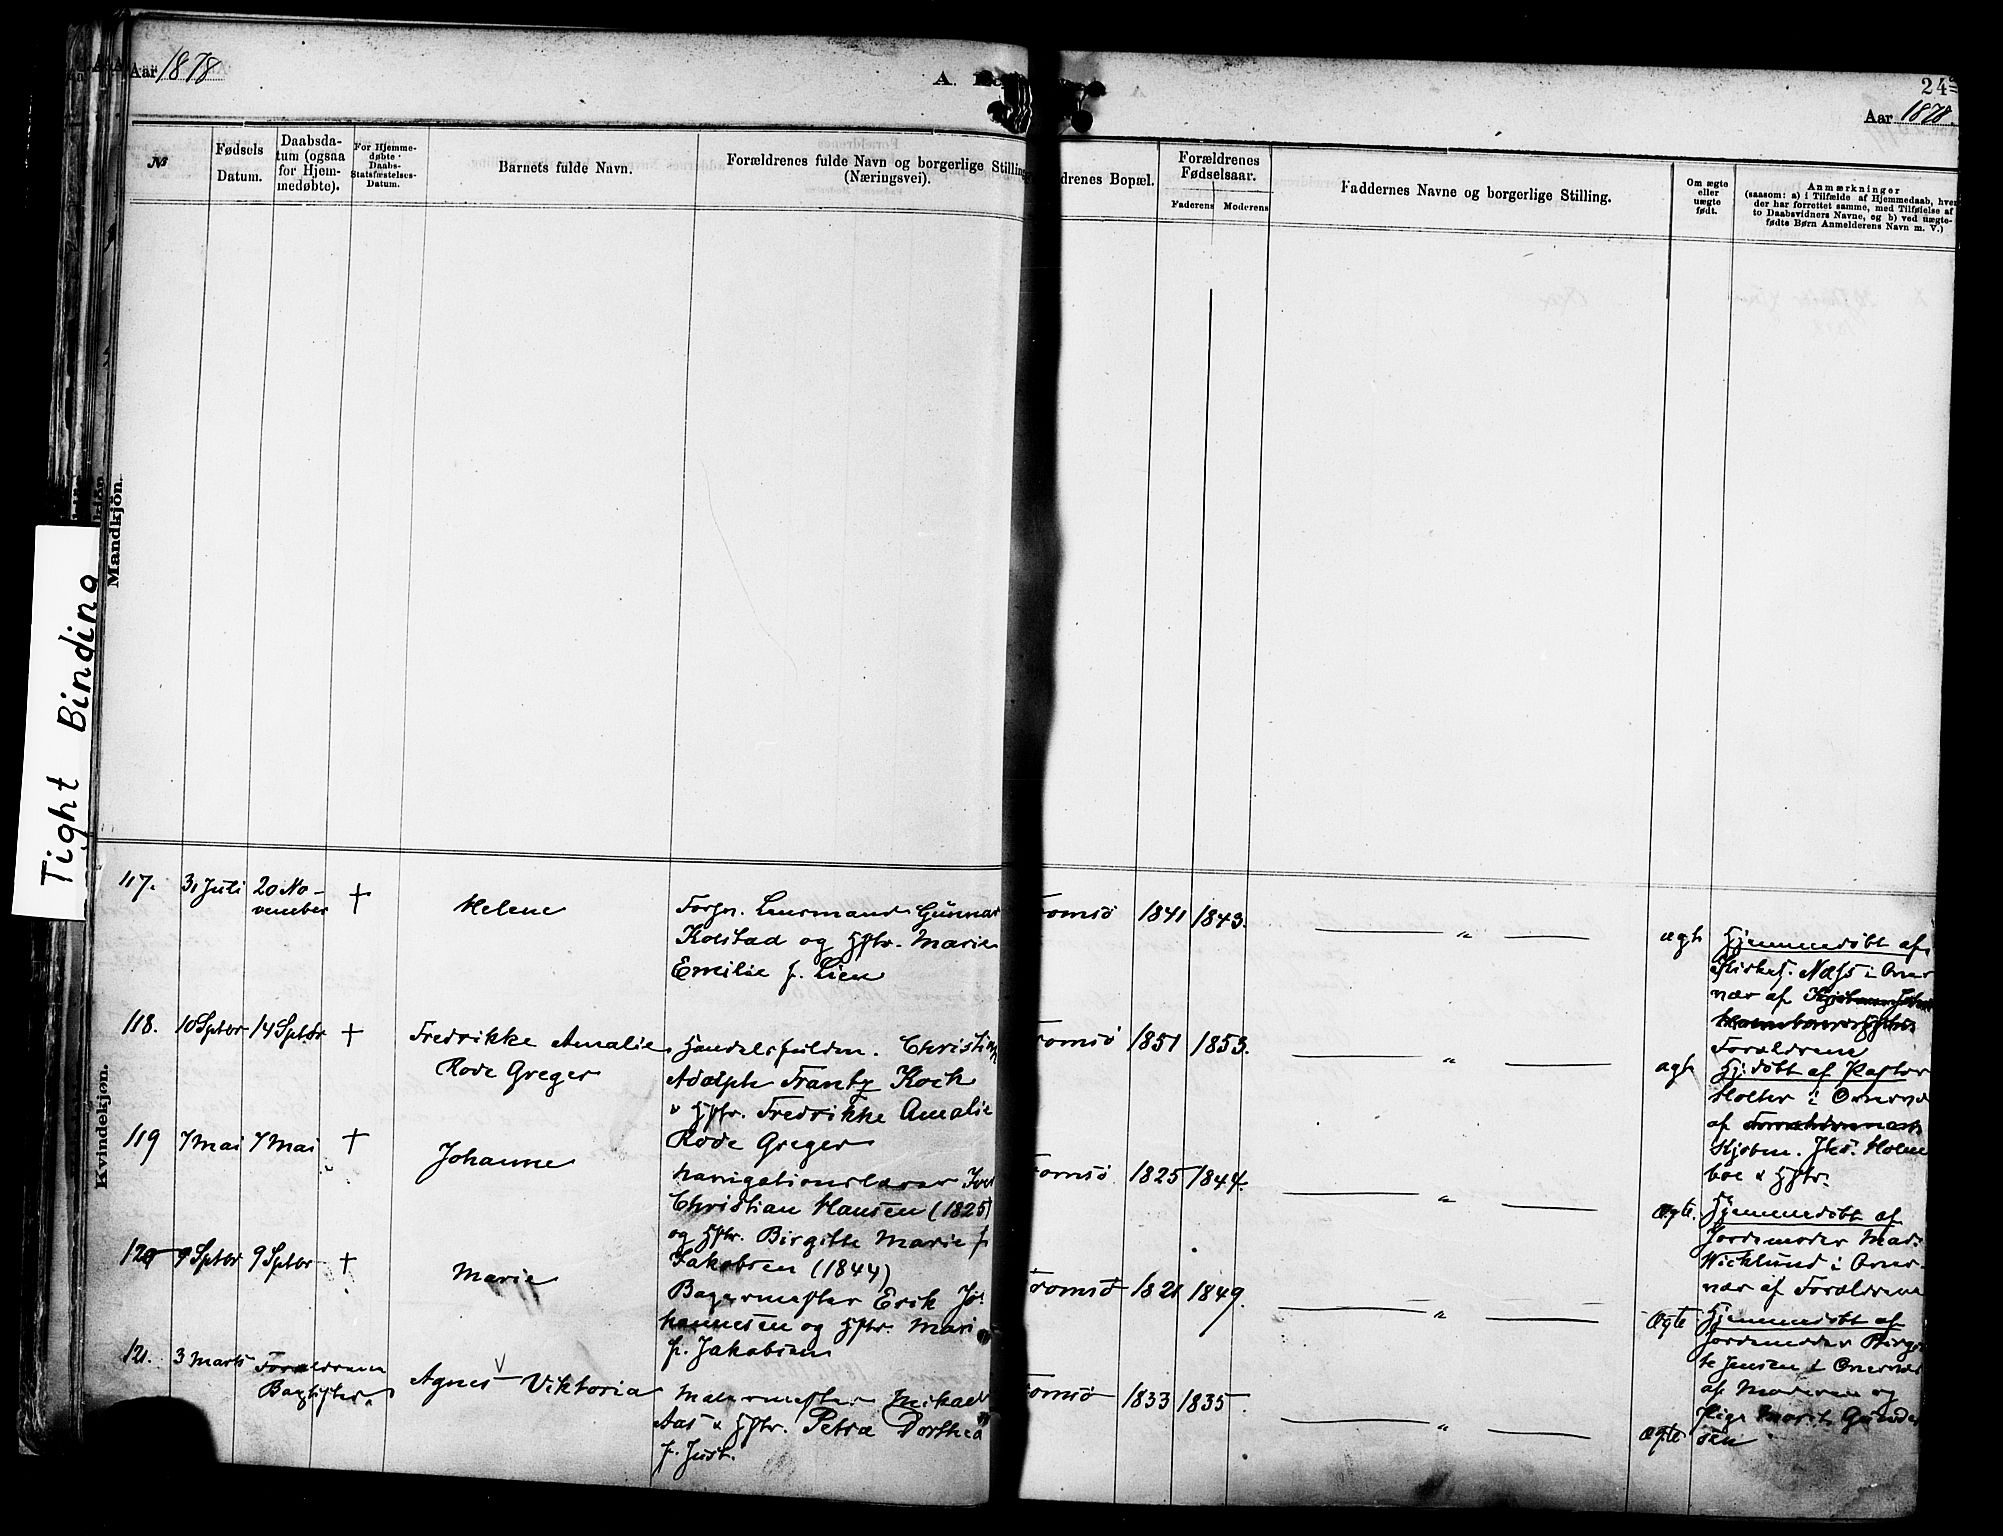 Aar 1878
A.
24
Aar 1878.
№
Fødsels Datum.
Daabsda-
tum (ogsaa
for Hjem-
medøbte).
For Hjemme-
døbte
Daabs-
Statsfæstelses-
Datum.
Barnets fulde Navn.
Forældrenes fulde Navn og borgerlige Stilling
(Næringsvei).
drenes Bopæl.
Forældrenes
Fødselsaar.
Faderens Moderens
Faddernes Navne og borgerlige Stilling.
Om ægte
eller
uægte
født.
Anmærkninger
(saasom: a) i Tilfælde af Hjemmedaab, hver
der har forrettet samme, med Tilføielse af
to Daabsvidners Navne, og b) ved uægte-
fødte Børn Anmelderens Navn m. V.)
Mandkjön.
Tight Binding
Kvindekjøn.
117. 31 Juli 20 No-
vember †
Helene
Forhn. Lensmand Gunnar
Kolstad og Hstr. Marie
Emilie f. Lien
romsø 1841 1843. — „ — ægte
Hjemmedøbt af
Kirkes. Næss i Over
vær af
Forældrene
118. 10 Septbr 14 Septbr †
Fredrikke Amalie
Rode Greger
Handelsfuldm. Christian
Adolph Frantz Koch
& Hstr. Fredrikke Amalie
Rode Greger
romsø 1851 1853. — „ — ægte
Hj:døbt af Pastor
Holter i Overvær
af
Kjøbm. Jhs. Holm
boe & Hstr.
119 7 Mai 7 Mai †
Johanne
Navigationslærer Iver
Christian Hansen (1825)
og Hstr. Birgitte Marie f
Jakobsen (1844)
romsø 1825 1844. — „ — Ægte.
Hjemmedøbt af
Jordemoder Mad.
Wicklund i Over-
vær af Forældrene
120 9 Septbr 9 Septbr †
Marie
Bagermester Erik Jo-
hannesen og Hstr. Mari
f. Jakobsen
romsø 1821 1849. — „ — Ægte
Hjemmedøbt af
Jordemoder Birgit
te Jensen i Overvær
af Moderen og
Pige Marit Gunder
sen
121. 3 Marts Forældrene
Baptister.
Agnes Viktoria
Malermester Mikael
Aas & Hstr. Petra Dorthea
f. Just.
romsø 1833 1835. — „ — ægte